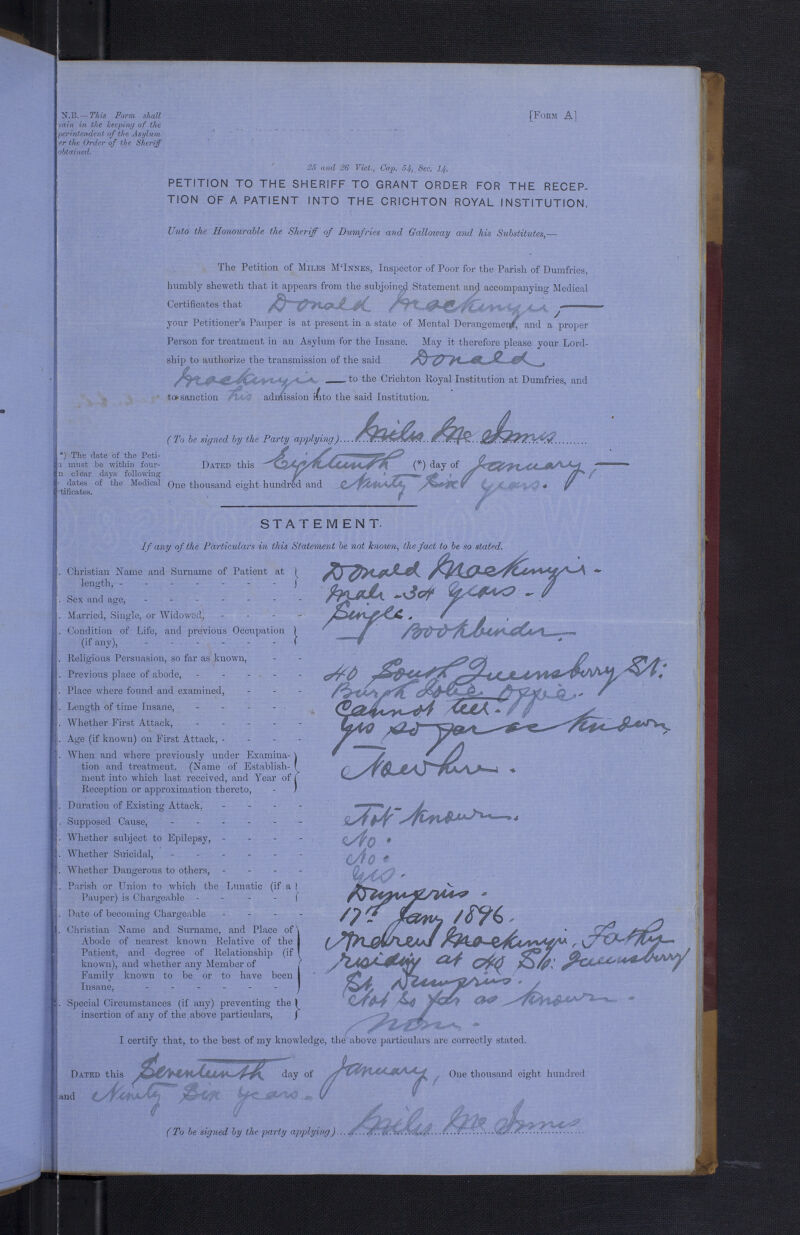 N.B.—This Form shall
in the keeping of the
of the Asylum
the Order of the Sheriff
obtained.
[FORM A]
25 and 26 Vict., Cap. 54, Sec. 14.
PETITION TO THE SHERIFF TO GRANT ORDER FOR THE RECEP-
TION OF A PATIENT INTO THE CRICHTON ROYAL INSTITUTION.
Unto the Honourable the Sheriff of Dumfries and Galloway and his Substitutes,—
The Petition of MILES M'INNES, Inspector of Poor for the Parish of Dumfries,
humbly sheweth that it appears from the subjoined Statement and accompanying Medical
Certificates that Donald Mackenzie,—
your Petitioner's Pauper is at present in a state of Mental Derangement, and a proper
Person for treatment in an Asylum for the Insane. May it therefore please your Lord-
ship to authorize the transmission of the said Donald
Mackenzie — to the Crichton Royal Institution at Dumfries, and
to sanction his admission into the said Institution.
(To be signed by the Party applying) Miles Mc Innes
*) The date of the Peti-
must be within four-
clear days following
dates of the Medical
DATED this Eighteenth (*) day of January,—
One thousand eight hundred and Ninety Six years.
STATEMENT.
If any of the Particulars in this Statement be not known, the fact to be so stated.
Christian Name and Surname of Patient at length, - Donald Mackenzie -
Sex and age, - Male - 34 years -
Married, Single, or Widowed, - Single.
Condition of Life, and previous Occupation (if any), - Bookbinder.
Religious Persuasion, so far as known,
Previous place of abode, - 40 South Queensberry St:
Place where found and examined, - Burgh Police Office.
Length of time Insane, - Cannot tell.
Whether First Attack, - Yes so far as known
Age (if known) on First Attack, -
When and where previously under Examina-
tion and treatment. (Name of Establish-
ment into which last received, and Year of
Reception or approximation thereto, - Nowhere.
Duration of Existing Attack. -
Supposed Cause, - Not known.
Whether subject to Epilepsy, - No.
Whether Suicidal, - No.
Whether Dangerous to others, - Yes.
Parish or Union to which the Lunatic (if a
Pauper) is Chargeable - Dumfries.
Date of becoming Chargeable - 17th Jany 1896.
Christian Name and Surname, and Place of
Abode of nearest known Relative of the
Patient, and degree of Relationship (if
known), and whether any Member of
Family known to be or to have been
Insane, -
Andrew Mackenzie, Father
residing at 40 So: Queensberry
St. Dumfries.
Not so far as known.
Special Circumstances (if any) preventing the
insertion of any of the above particulars, None.
I certify that, to the best of my knowledge, the above particulars are correctly stated.
DATED this Seventeenth day of January, One thousand eight hundred
and Ninety Six years.
(To be signed by the party applying) Miles Mc Innes